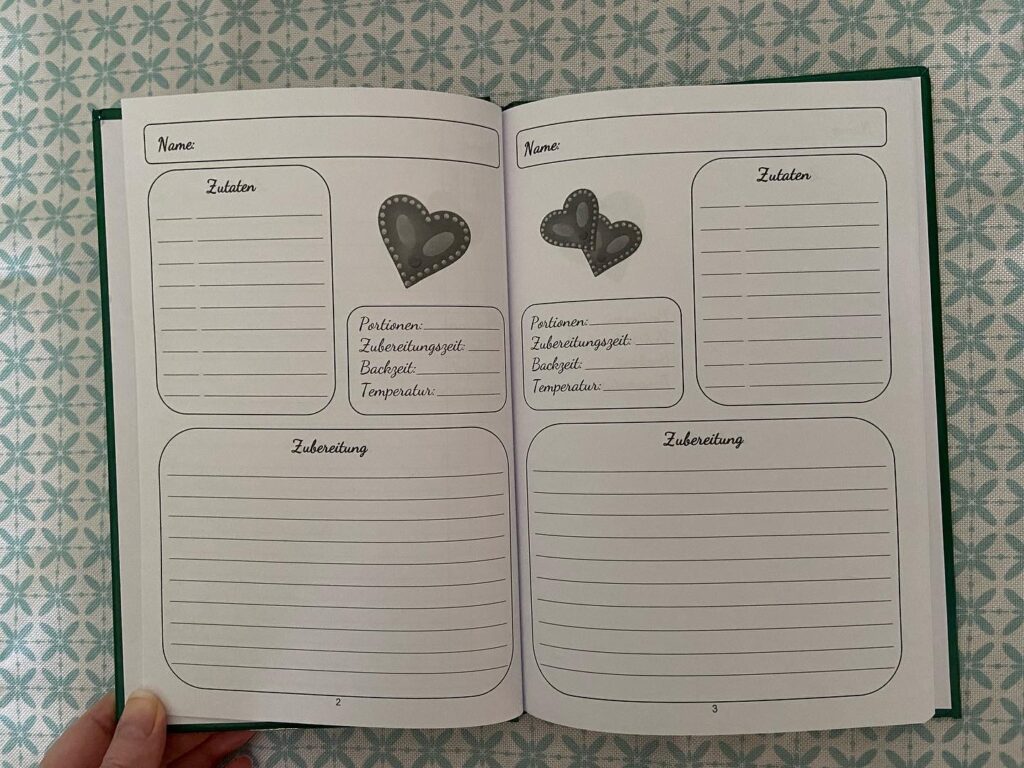 Name:
Zutaten
Portionen:
Zubereitungszeit:
Backzeit:
Temperatur:
Zubereitung
2
Name:
Zutaten
Portionen:
Zubereitungszeit:
Backzeit:
Temperatur:
Zubereitung
3